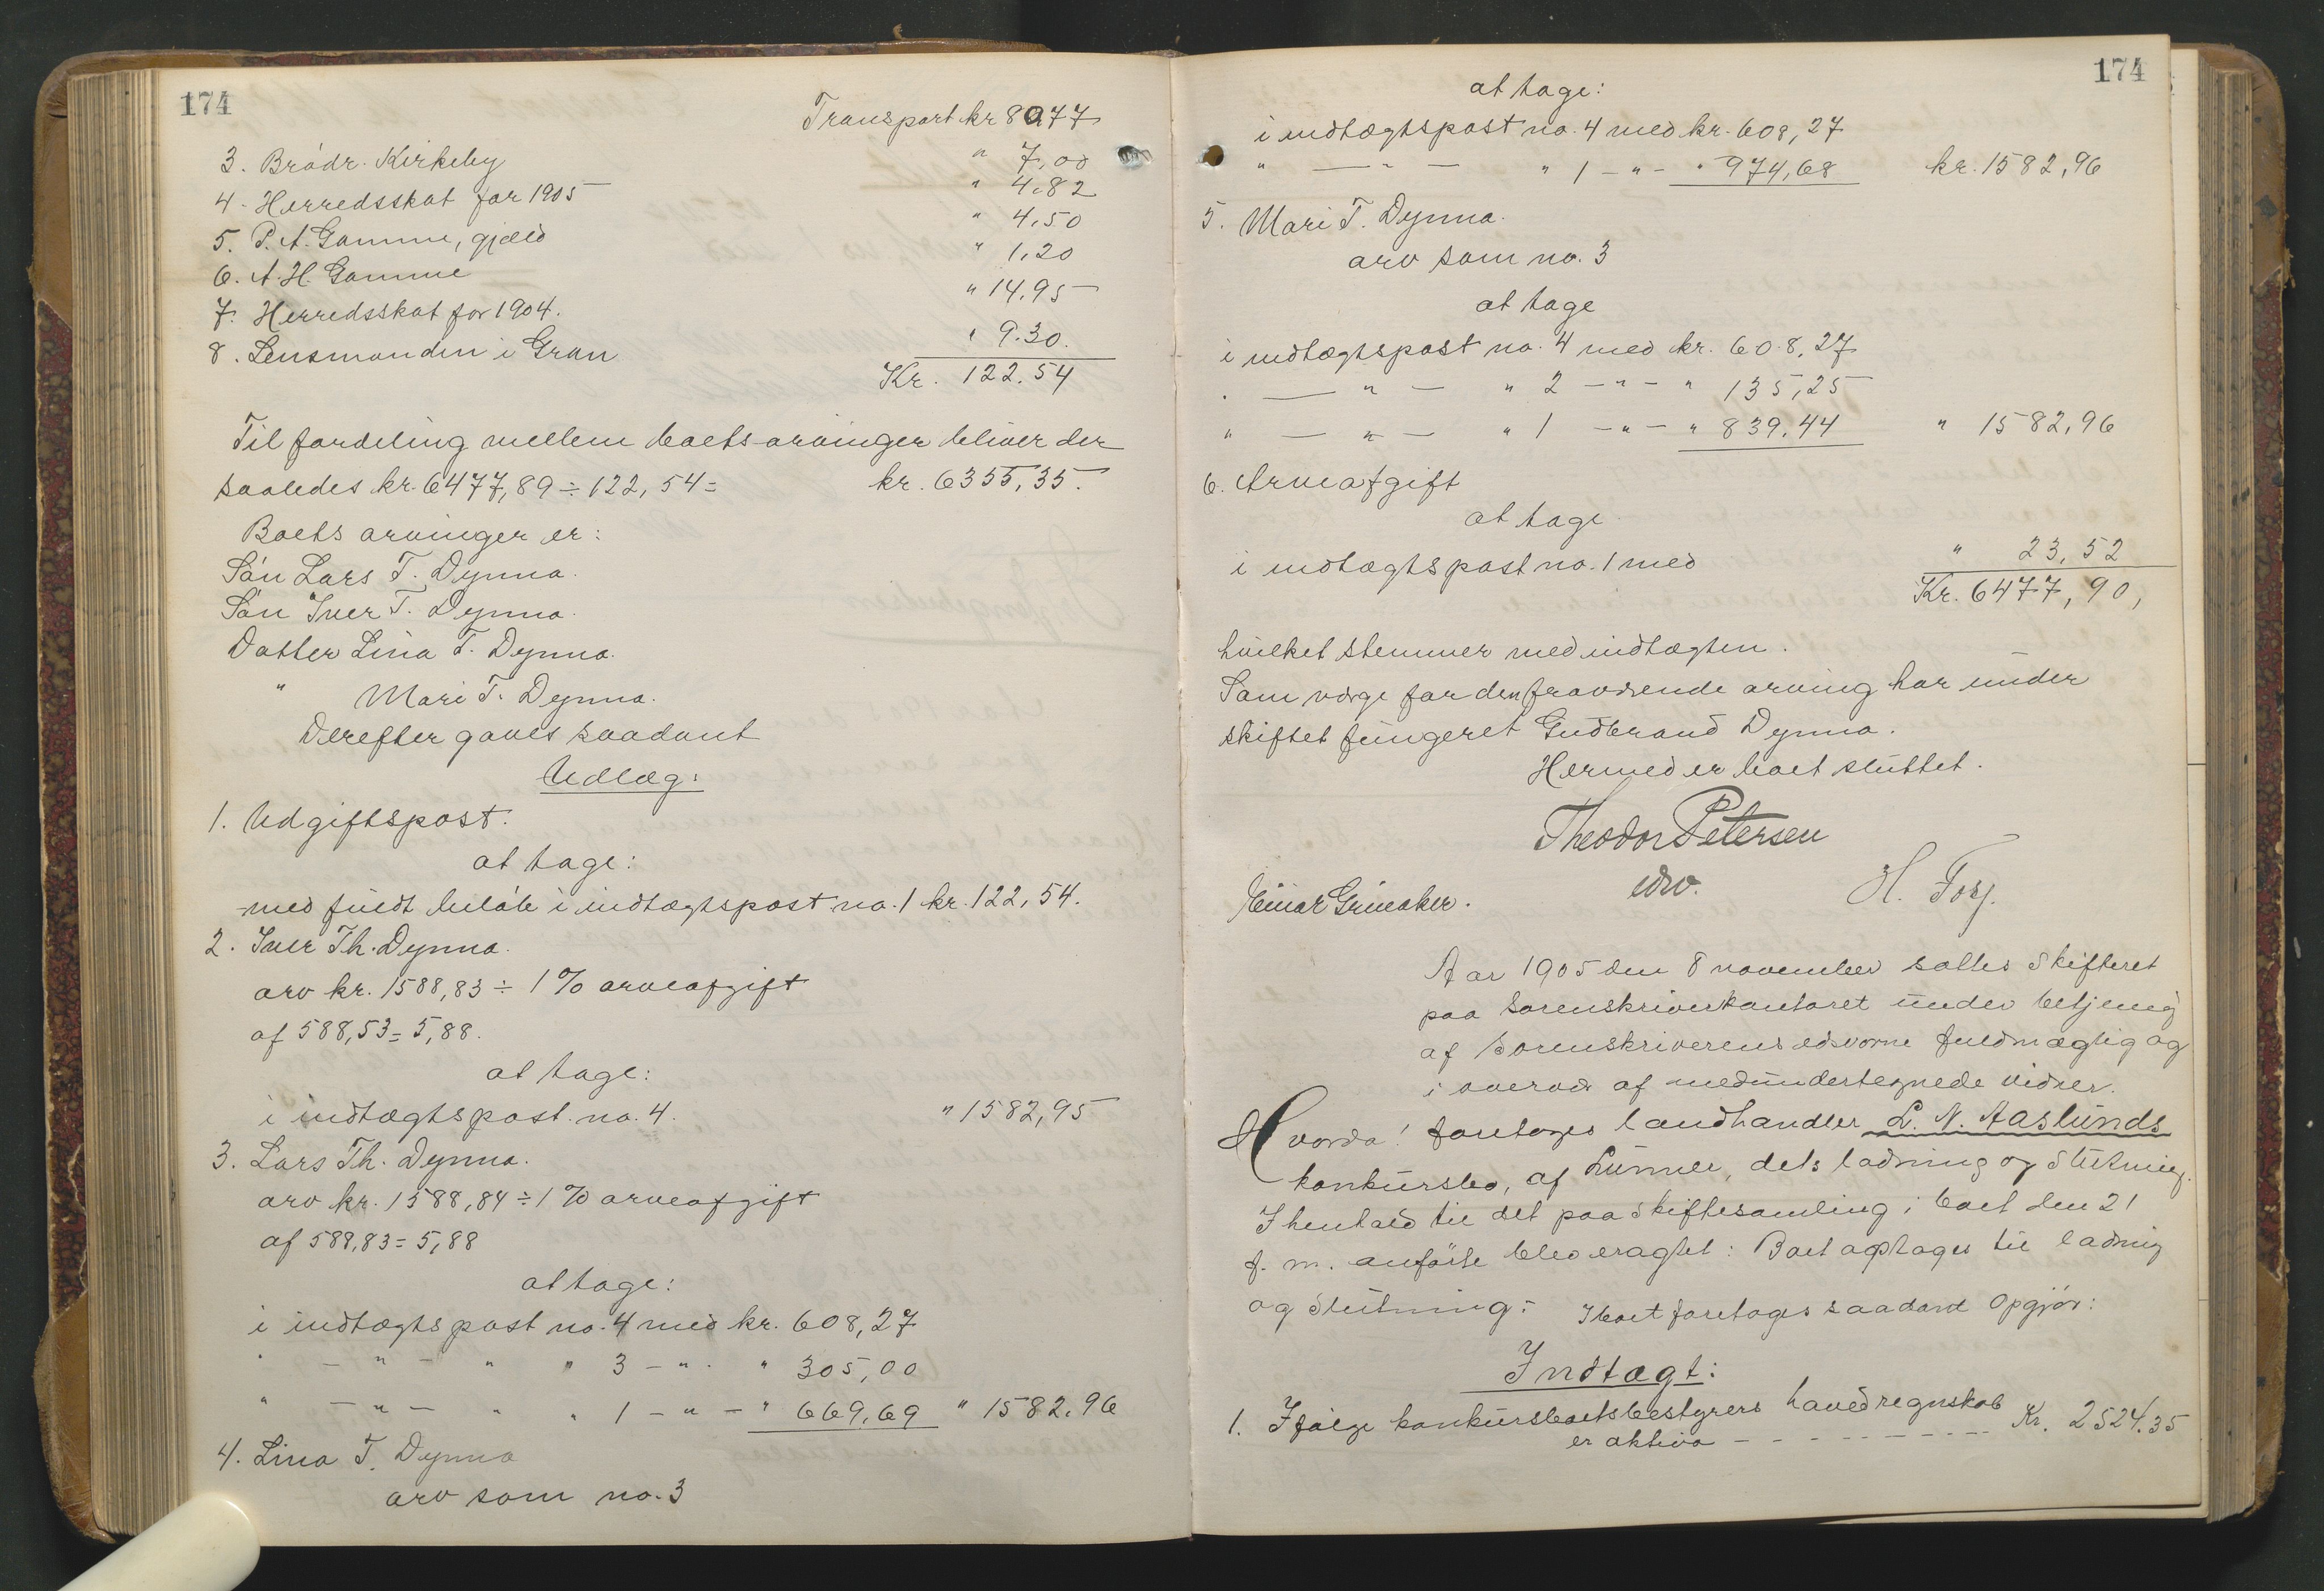 174
Transport kr 80,77
3. Brødr. Kirkeby " 7,00
4. Herredsskat for 1905 " 4.82
5. P. A. Gamme, gjæld " 4,50
6. A. H. Gamme " 1,20
7. Herredsskat for 1904. " 14.95
8. Lensmanden i Gran " 9.30.
Kr. 122.54
Til fordeling mellem boets arvinger bliver der
saaledes kr. 6477,89 ÷ 122,54 = kr. 6355,35.
Boets arvinger er:
Søn Lars T. Dynna.
Søn Iver T. Dynna.
Datter Lina T. Dynna.
" Mari T. Dynna.
Derefter gaves saadant
Udlæg:
1. Udgiftspost.
at tage:
med fuldt beløb i indtægtspost no. 1 kr. 122,54.
2. Iver Th. Dynna.
arv kr. 1588,83 ÷ 1 % arveafgift
af 588,53 = 5,88.
at tage:
i indtægtspost no. 4. " 1582,95
3. Lars Th. Dynna.
arv kr. 1588,84 ÷ 1 % arveafgift
af 588,83 = 5,88
at tage:
i indtægtspost no. 4 med kr. 608,27
" — " — " " 3 — " " 305,00
" — " — " " 1 — " — " 669,69 " 1582.96
4. Lina T. Dynna
arv som no. 3
174
at tage:
i indtægtspost no. 4 med kr. 608,27
" — " — " 1 — " — " 974,68 kr. 1582,96
5. Mari T. Dynna.
arv som no. 3
at tage
i indtægtspost no. 4 med kr. 608,27
" — " — " 2 — " — " 135,25
" — " — " 1 — " — " 839.44 " 1582,96
6. Arveafgift
at tage
i indtægtspost no. 1 med " 23,52
Kr. 6477,90,
hvilket stemmer med indtægten.
Som værge for den fraværende arving har under
skiftet fungeret Gudbrand Dynna.
Hermed er boet sluttet.
Theodor Petersen
edsv.
Einar Grinaker. H. Fosj.
Aar 1905 den 8 november sattes Skifteret
paa Sorenskriverkontoret under betjening
af Sorenskriverens edsvorne fuldmægtig og
i overvær af medundertegnede vidner.
Hvorda! foretoges landhandler L. N. Aaslunds
konkursbo, af Lunner, dets ladning og Slutning.
I henhold til det paa Skiftesamling i boet den 21
f. m. anførte blev eragtet: Boet optages til ladning
og Slutning: I boet foretoges saadant Opgjør:
Indtægt:
1. Ifølge konkursboetsbestyrers hovedregnskab
er aktiva - - - - - - - - - Kr. 2524.35